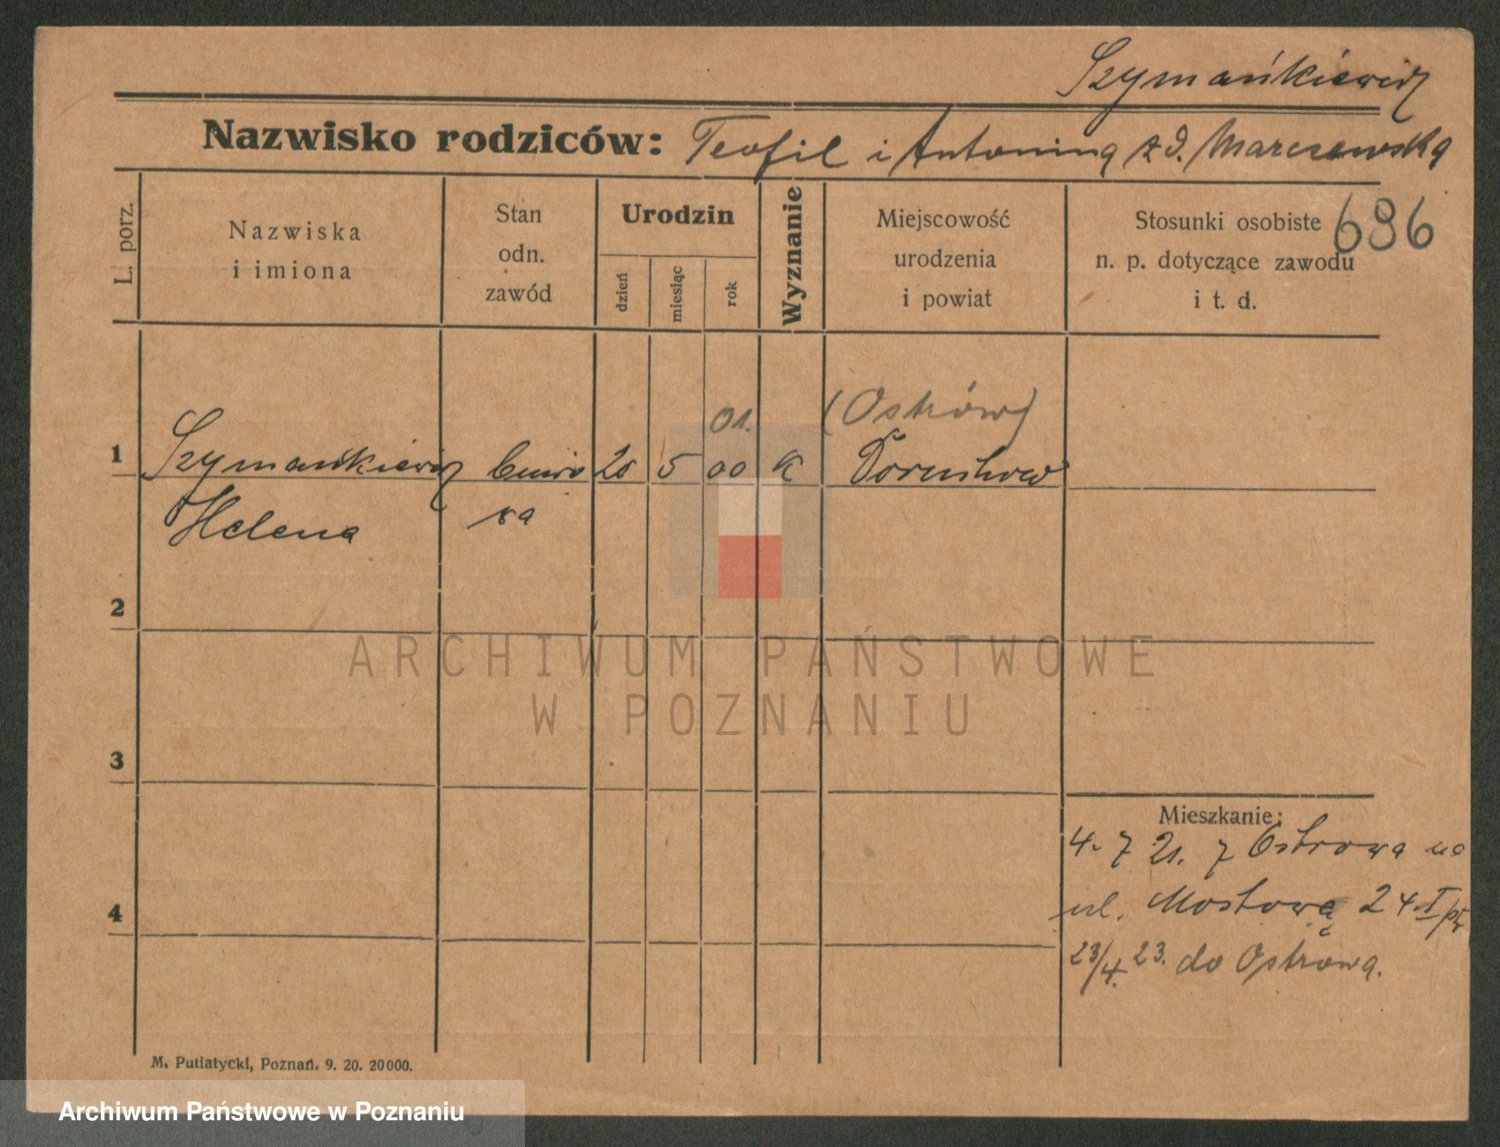 Szymańkiewicz
Nazwisko rodziców: Teofil i Antonina z d. Marczewska
L. porz.
Nazwiska
i imiona
Stan
odn.
zawód
Urodzin
dzień
miesiąc
rok
Wyznanie
Miejscowość
urodzenia
i powiat
Stosunki osobiste
n. p. dotyczące zawodu
i t. d.
686
01. (Ostrów)
1 Szymańkiewicz biuro 20 5 00 K
Helena wa
2
3
4
Mieszkanie:
4. 7 21. z Ostrowa na
ul. Mostową 24. I ptr
23/4. 23. do Ostrowa.
M. Putiatycki, Poznań. 9. 20. 20000.
ARCHIWUM PAŃSTWOWE
W POZNANIU
Archiwum Państwowe w Poznaniu